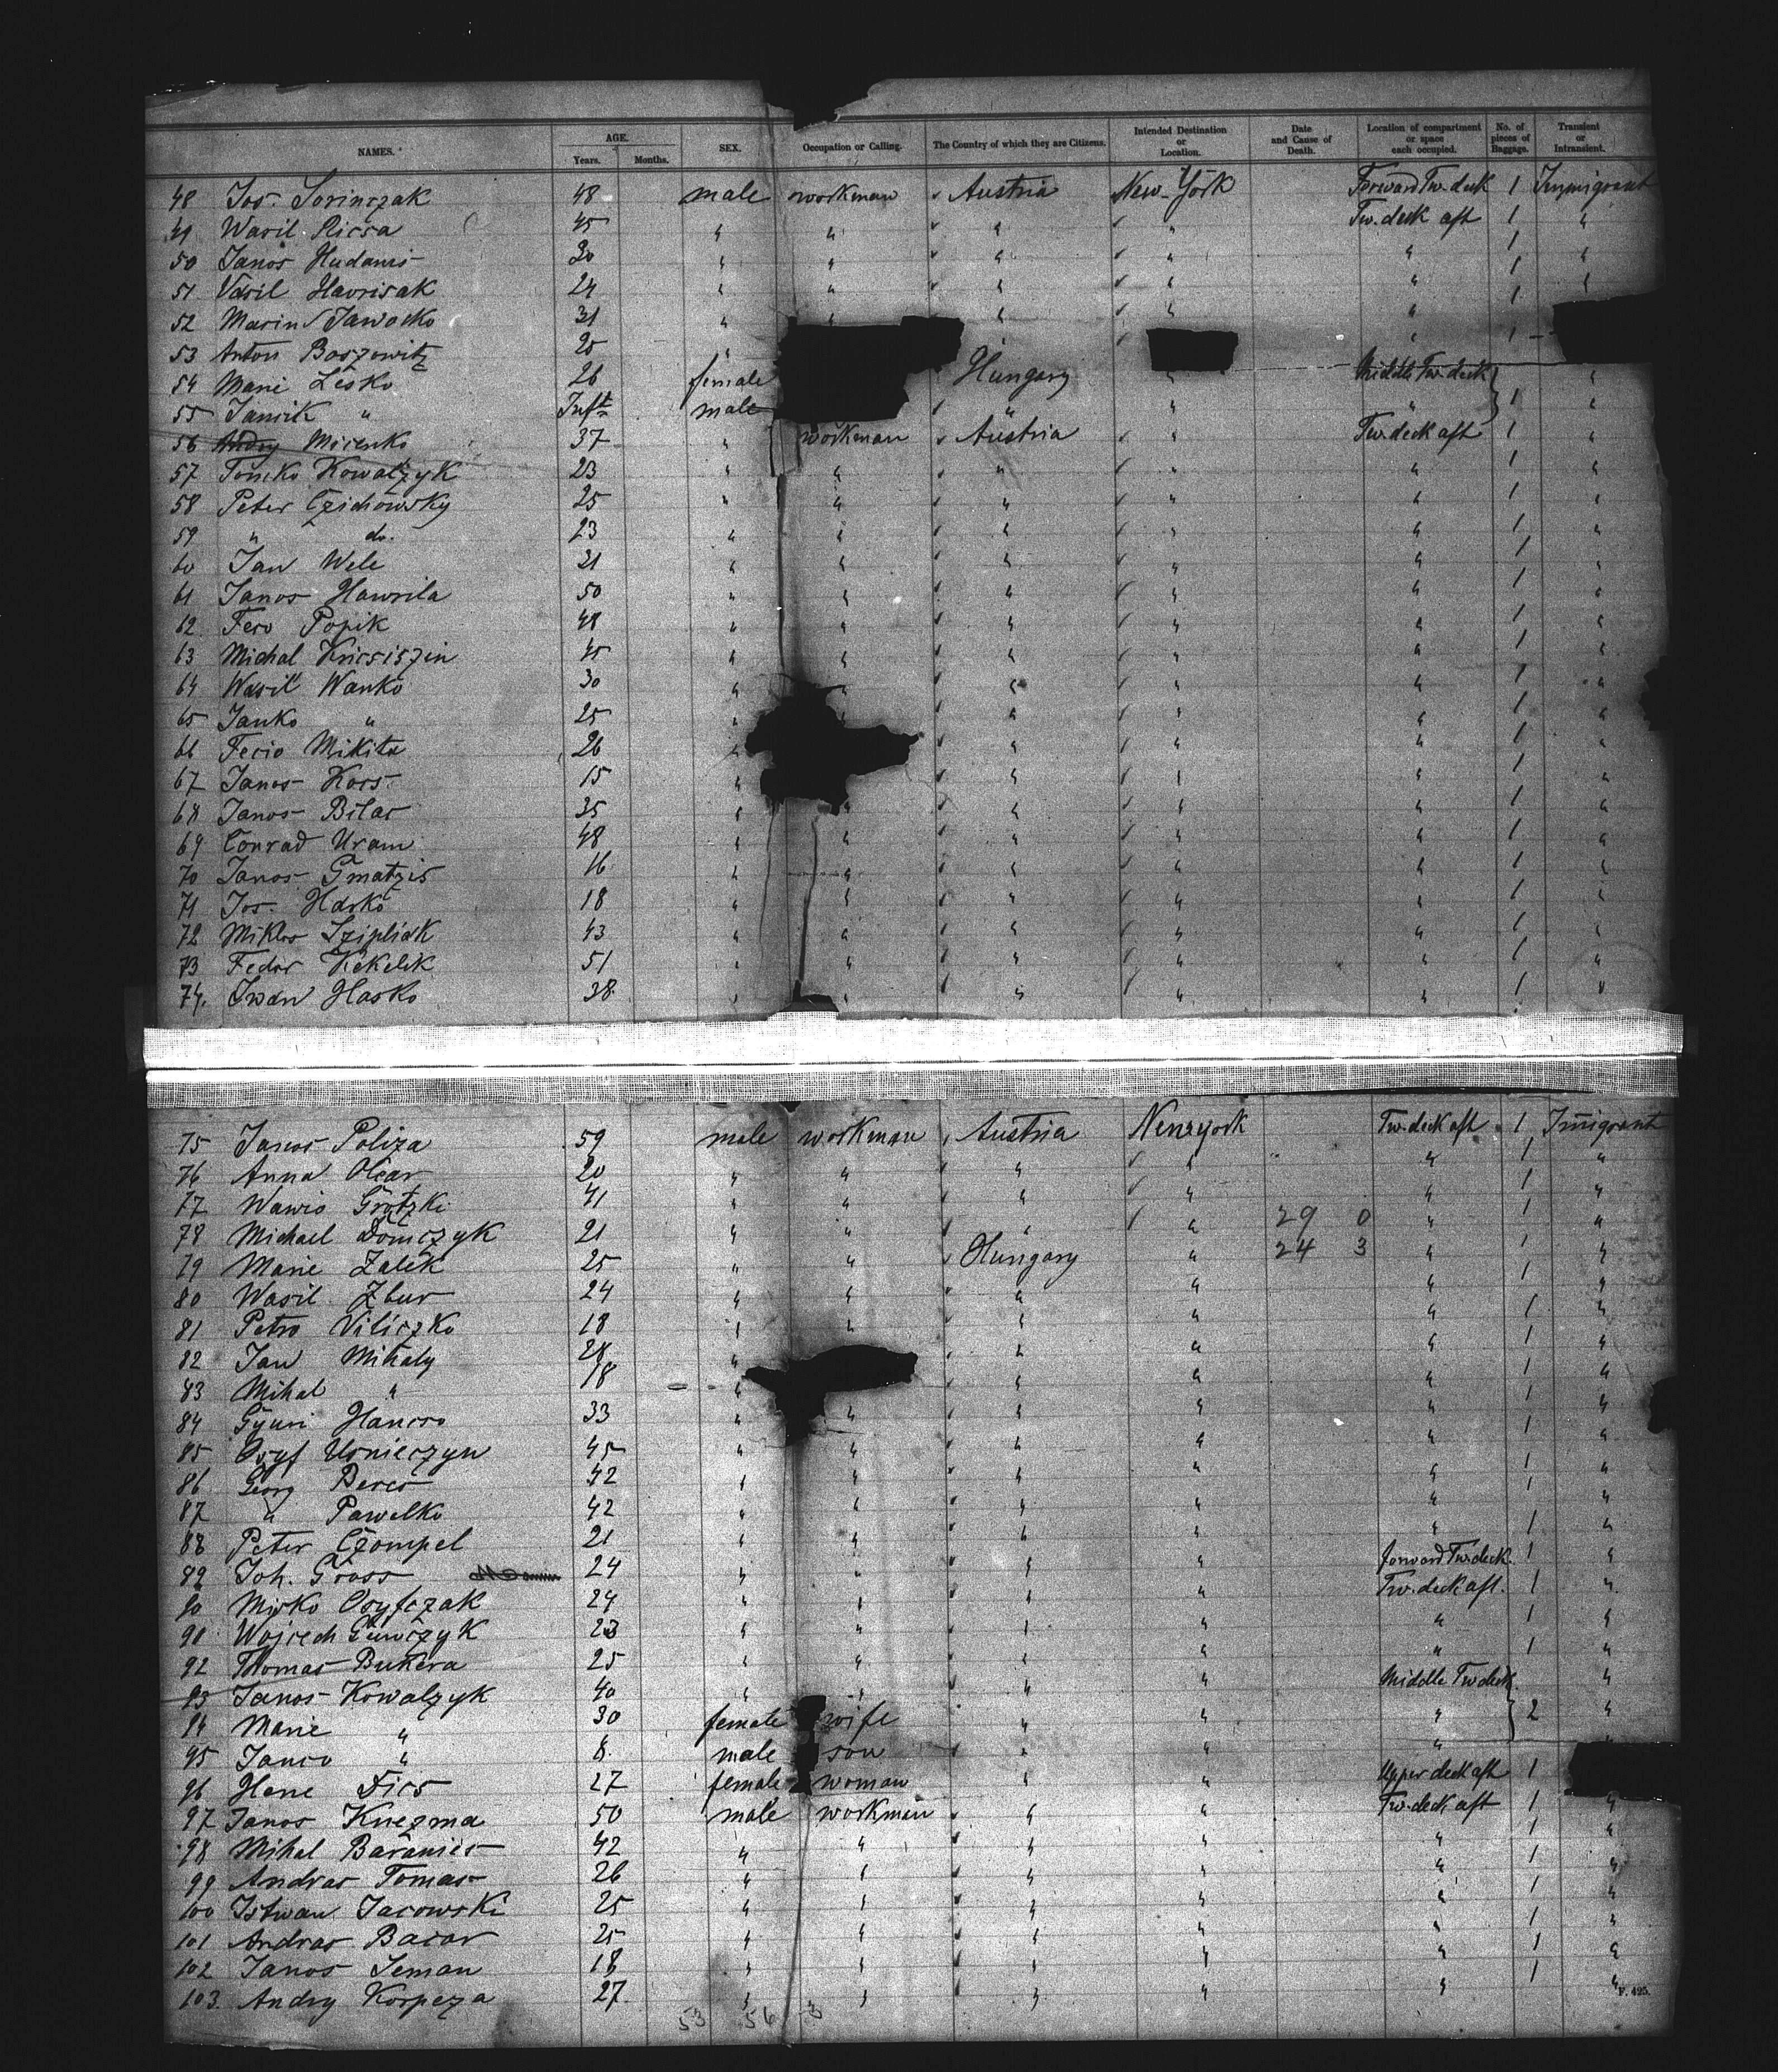 NAMES. AGE. Years. Months. SEX. Occupation or Calling. The Country of which they are Citizens. Intended Destination or Location. Date and Cause of Death. Location of compartment or space each occupied. No. of pieces of Baggage. Transient or Intransient.
48 Jos. Lorinczak 48 male workman Austria New-York Forward Tw. deck 1 Immigrant
49 Wasil Ricsa 45 " " " " Tw. deck aft 1 "
50 Janos Hudanis 30 " " " " " 1 "
51 Vasil Havrisak 24 " " " " " 1 "
52 Marin Jawocko 31 " " " " " 1
53 Anton Boszowitz 25 " " 1
54 Marie Lesko 26 female Hungary " Middle Tw. deck "
55 Janик " Inft male " " " 1 "
56 Andry Micenko 37 " workman Austria " Tw. deck aft 1 "
57 Tomko Kowalzyk 23 " " " " " 1 "
58 Peter Czichowsky 25 " " " " " 1 "
59 " do. 23 " " " " " 1 "
60 Jan Wele 21 " " " " " 1 "
61 Janos Hawrila 50 " " " " " 1 "
62 Fero Popik 48 " " " " " 1 "
63 Michal Kricsiszin 45 " " " " " 1 "
64 Wasil Wanko 30 " " " " " 1 "
65 Janko " 25 " " " " 1 "
66 Fecio Mikita 26 " " " " 1 "
67 Janos Kors 15 " " " " 1 "
68 Janos Bilar 35 " " " " " 1 "
69 Conrad Uram 48 " " " " " 1 "
70 Janos Gmatzis 16 " " " " " 1 "
71 Jos. Harko 18 " " " " " 1 "
72 Miklos Szipliak 43 " " " " " 1 "
73 Fedor Kekelik 51 " " " " " 1 "
74. Iwan Hasko 38 " " " " " 1 "
75 Janos Poliza 59 male workman Austria Newyork Tw. deck aft 1 Immigrant
76 Anna Olear 20 " " " " " 1 "
77 Wawio Grotzki 41 " " " " " 1 "
78 Michael Domczyk 21 " " " " 29 0 " 1 "
79 Marie Zalek 25 " " Hungary " 24 3 " 1 "
80 Wasil Zbur 24 " " " " " 1 "
81 Petro Viliczko 18 " " " " " 1 "
82 Jan Mihaly 28 " " " " 1 "
83 Mihal " 18 " " " " 1 "
84 Gyuri Hancso 33 " " " " " 1 "
85 Osyf Usnieczyn 45 " " " " " 1 "
86 Georg Beres 42 " " " " " 1 "
87 " Pawelko 42 " " " " " 1 "
88 Peter Czompel 21 " " " " " 1 "
89 Joh. Gross 24 " " " " forward Tw. deck 1 "
90 Misko Osyfczak 24 " " " " Tw. deck aft. 1 "
91 Wojcech Gurczyk 23 " " " " " 1 "
92 Thomas Bukera 25 " " " " " 1 "
93 Janos Kowalzyk 40 " " " " Middle Tw deck "
94 Marie " 30 female wife " " " 2 "
95 Janco " 8. male son " " " "
96 Hene Fics 27 female woman " " Upper deck aft 1
97 Janos Knezma 50 male workman " " Tw. deck aft 1 "
98 Mihal Baranies 42 " " " " " 1 "
99 Andras Tomas 26 " " " " " 1 "
100 Istwan Jacowski 25 " " " " " 1 "
101 Andras Bacar 25 " " " " " 1 "
102 Janos Seman 18 " " " " " 1 "
103. Andry Korpeza 27 " " " " " 1 "
F. 495.
53 56 3